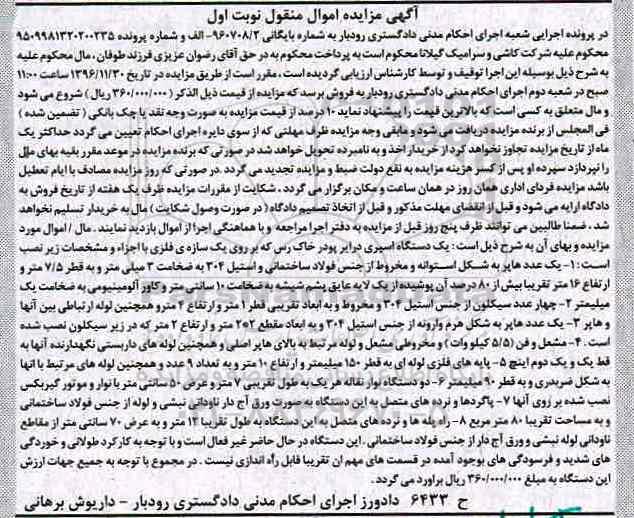 آگهی مزایده اموال منقول نوبت اول
در پرونده اجرایی شعبه اجرای احکام مدنی دادگستری رودبار به شماره بایگانی ۹۶۰۷۰۸/۲- الف و شماره پرونده ۹۵۰۹۹۸۱۳۲۰۲۰۰۲۳۵
محکوم علیه شرکت کاشی و سرامیک گیلانا محکوم است به پرداخت محکوم به در حق آقای رضوان عزیزی فرزند طوفان ، مال محکوم علیه
به شرح ذیل بوسیله این اجرا توقیف و توسط کارشناس ارزیابی گردیده است ، مقرر است از طریق مزایده در تاریخ ۱۳۹۶/۱۱/۳۰ ساعت ۱۱:۰۰
صبح در شعبه دوم اجرای احکام مدنی دادگستری رودبار به فروش برسد که مزایده از قیمت ذیل الذکر ( ۳۶۰/۰۰۰/۰۰۰ ریال ) شروع می شود
و مال متعلق به کسی است که بالاترین قیمت را پیشنهاد نماید ۱۰ درصد از قیمت مزایده به صورت وجه نقد یا چک بانکی ( تضمین شده )
فی المجلس از برنده مزایده دریافت می شود و مابقی وجه مزایده ظرف مهلتی که از سوی دایره اجرای احکام تعیین می گردد حداکثر یک
ماه از تاریخ مزایده تجاوز نخواهد کرد از خریدار اخذ و به نامبرده تحویل خواهد شد در صورتی که برنده مزایده در موعد مقرر بقیه بهای مال
را نپردازد سپرده او پس از کسر هزینه مزایده به نفع دولت ضبط و مزایده تجدید می گردد .در صورتی که روز مزایده مصادف با ایام تعطیل
باشد مزایده فردای اداری همان روز در همان ساعت و مکان برگزار می گردد ، شکایت از مقررات مزایده ظرف یک هفته از تاریخ فروش به
دادگاه ارایه می شود و قبل از انقضای مهلت مذکور و قبل از اتخاذ تصمیم دادگاه ( در صورت وصول شکایت ) مال به خریدار تسلیم نخواهد
شد ، ضمنا طالبین می توانند ظرف پنج روز قبل از مزایده به دفتر اجرا مراجعه و با هماهنگی اجرا از اموال بازدید نمایند . مال / اموال مورد
مزایده و بهای آن به شرح ذیل است : یک دستگاه اسپری درایر پودر خاک رس که بر روی یک سازه ی فلزی با اجزاء و مشخصات زیر نصب
است : ۱- یک عدد هاپر به شکل استوانه و مخروط از جنس فولاد ساختمانی و استیل ۳۰۴ به ضخامت ۳ میلی متر و به قطر ۷/۵ متر و
ارتفاع ۱۶ متر تقریبا بیش از ۸۰ درصد آن پوشیده از یک لایه عایق پشم شیشه به ضخامت ۱۰ سانتی متر و کاور آلومینیومی به ضخامت یک
میلیمتر ۲- چهار عدد سیکلون از جنس استیل ۳۰۴ و مخروط و به ابعاد تقریبی قطر ۱ متر و ارتفاع ۴ مترو همچنین لوله ارتباطی بین آنها
و هاپر ۳- یک عدد هاپر به شکل هرم وارونه از جنس استیل ۳۰۴ و به ابعاد مقطع ۲*۲ متر و ارتفاع ۲ متر که در زیر سیکلون نصب شده
است . ۴- مشعل و فن (۵/۵ کیلو وات) و مخروطی مشعل و لوله مرتبط به بالای هاپر اصلی و همچنین لوله های داربستی نگهدارنده آنها به
قط یک و یک دوم اینچ ۵- پایه های فلزی لوله ای به قطر ۱۵۰ میلیمتر و ارتفاع ۱۰ متر و به تعداد ۹ عدد و همچنین لوله های مرتبط با انها
به شکل ضربدری و به قطر ۹۰ میلیمتر ۶- دو دستگاه نوار نقاله هر یک به طول تقریبی ۷ متر و عرض ۵۰ سانتی متر با نوار و موتور گیربکس
نصب شده بر زوی آنها ۷- پاگردها و نرده های متصل به این دستگاه به صورت ورق آج دار ناودانی نبشی و لوله از جنس فولاد ساختمانی
و به مساحت تقریبا ۸۰ متر مربع ۸- راه پله ها و نرده های متصل به این دستگاه به طول تقریبا ۱۲ متر و به عرض ۷۰ سانتی متر از مقاطع
ناودانی لوله نبشی و ورق آج دار از جنس فولاد ساختمانی .این دستگاه در حال حاضر غیر فعال است و با توجه به کارکرد طولانی و خوردگی
های شدید و فرسودگی های بوجود آمده در قسمت های مهم ان تقریبا قابل راه اندازی نیست . در مجموع با توجه به جمیع جهات ارزش
این دستگاه به مبلغ ۳۶۰/۰۰۰/۰۰۰ ریال براورد می گردد .
ح ۶۴۳۳ دادورز اجرای احکام مدنی دادگستری رودبار - داریوش برهانی